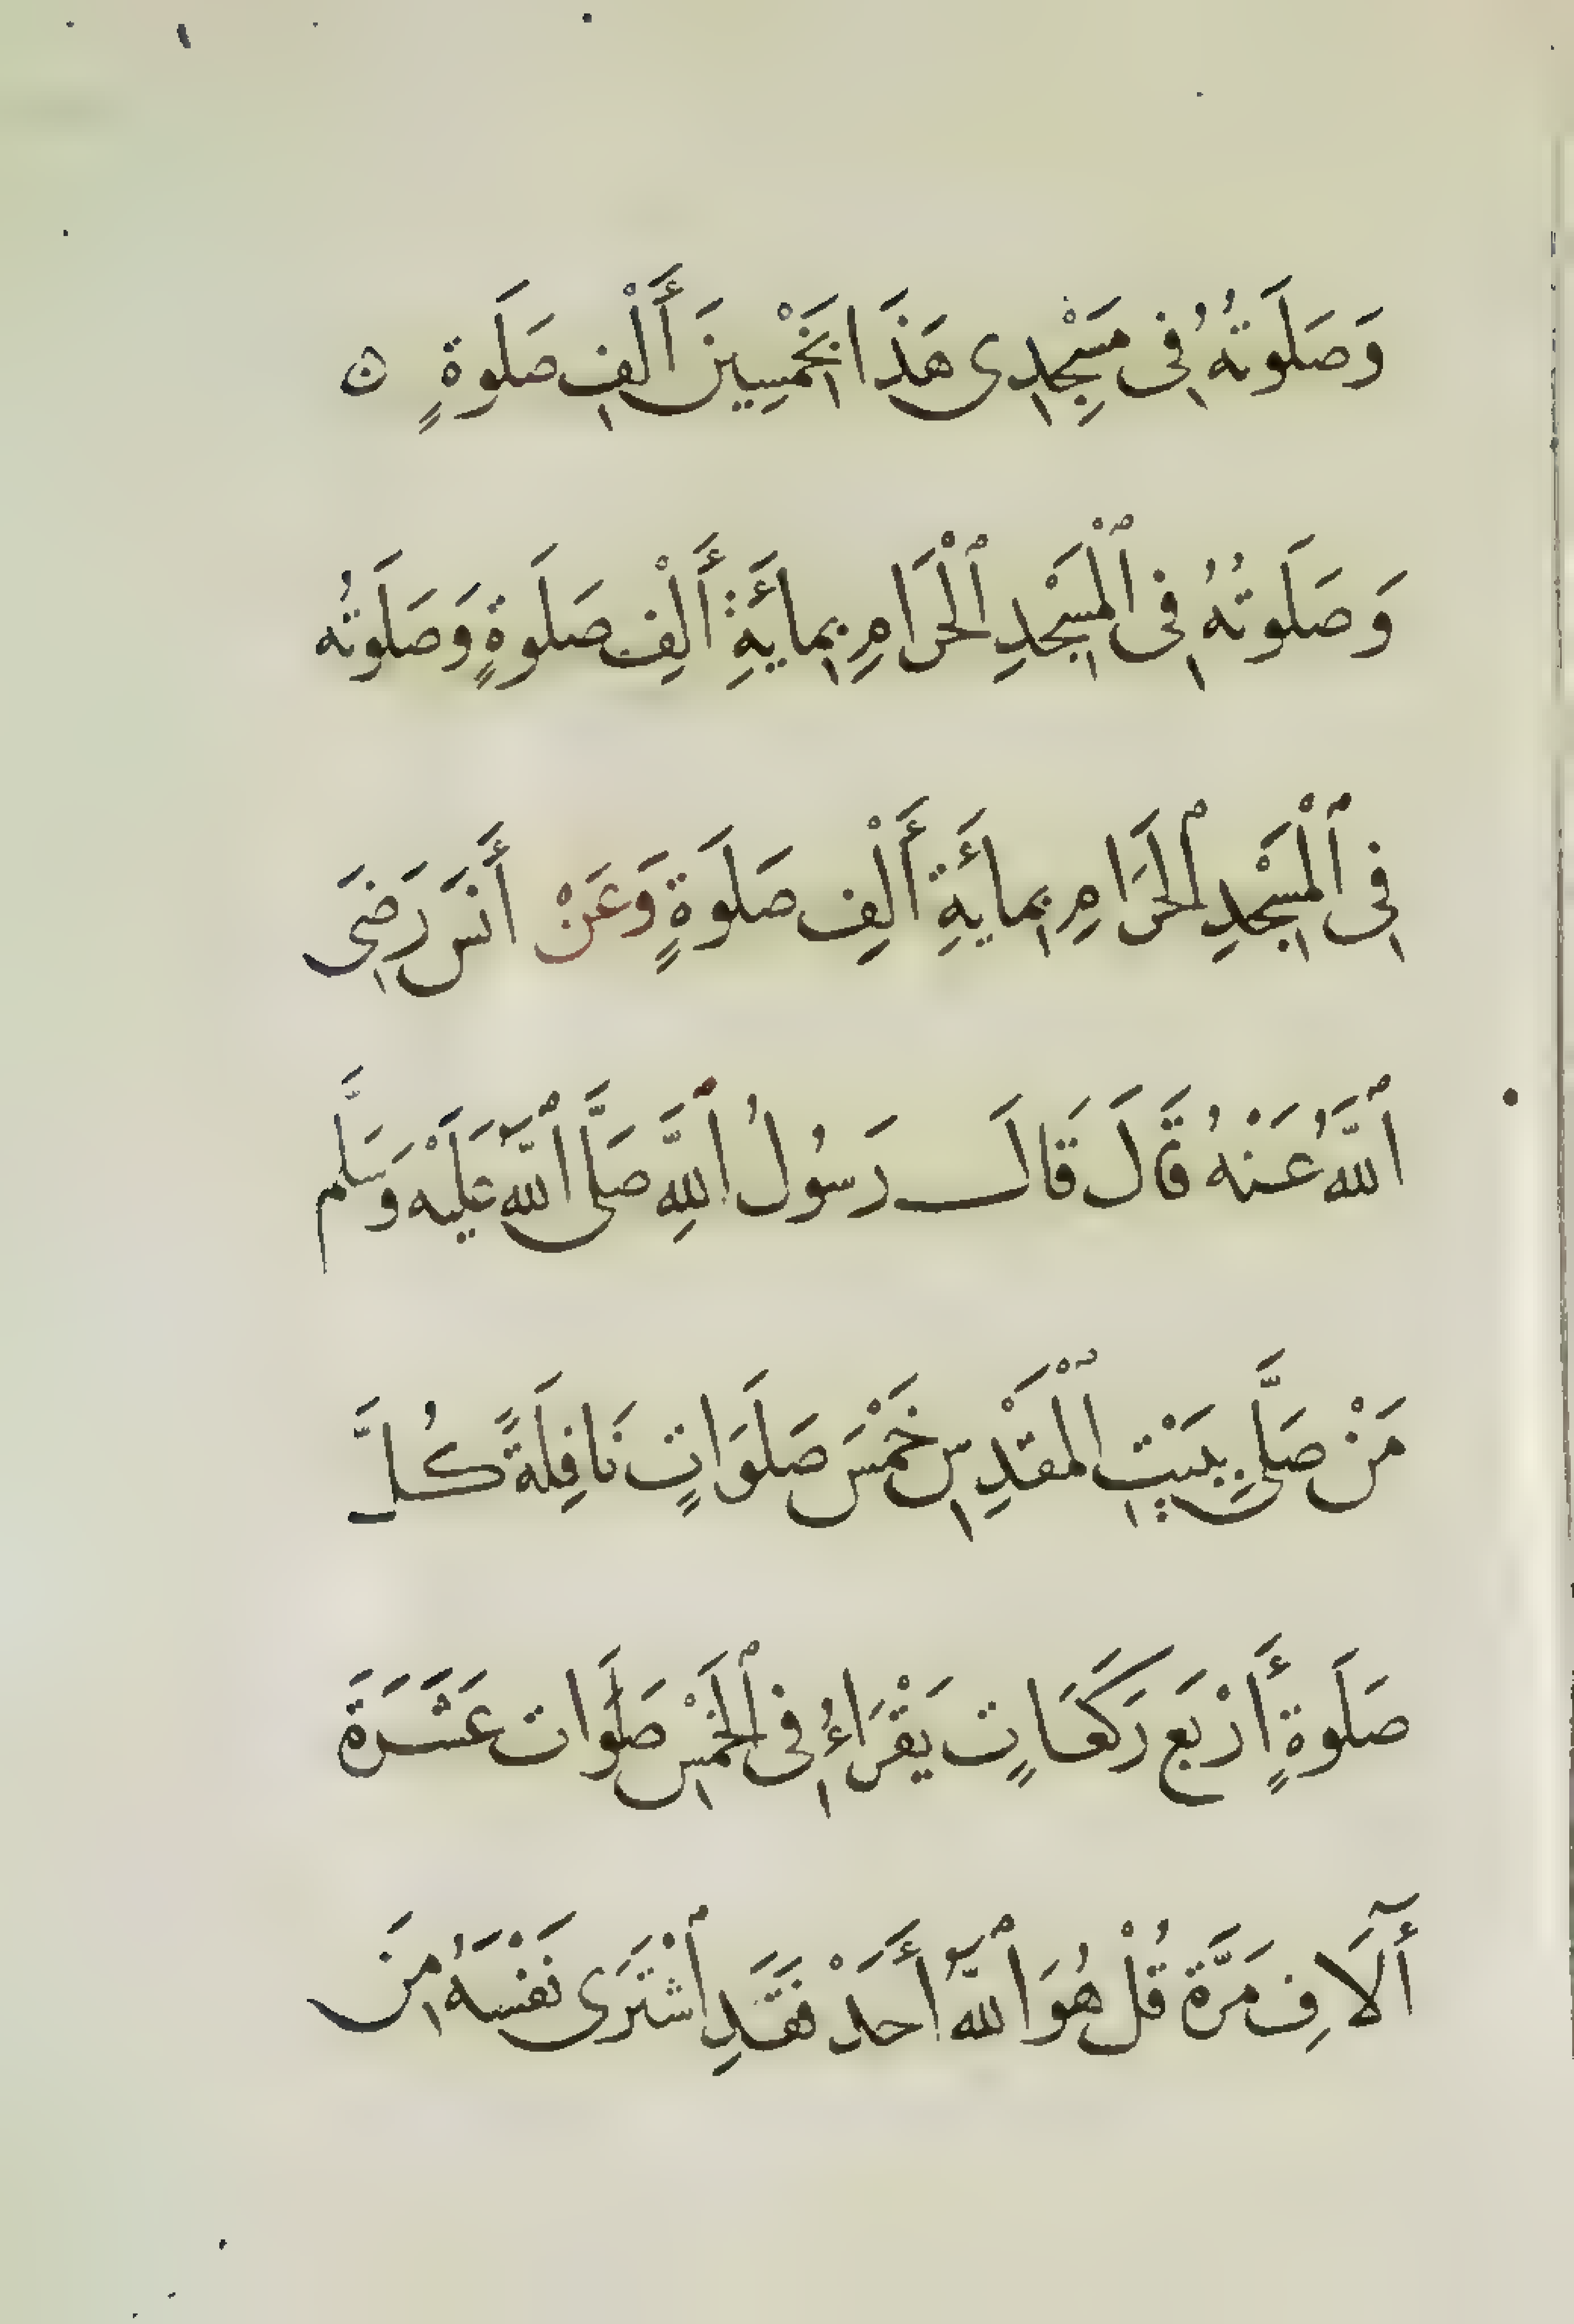 وَصَلَوتُهُ فِى مَسْجِدِى هَذَا بِخَمْسِينَ أَلْفِ صَلَوةٍ ۝
وَصَلَوتُهُ فِى ٱلْمَسْجِدِ ٱلْحَرَامِ بِمائَةِ أَلْفِ صَلَوةٍ وَصَلَوتُه
فِى ٱلْمَسْجِدِ ٱلْحَرَامِ بِمائَةِ أَلْفِ صَلَوةٍ وَعَنْ أَنَس رَضِىَ
ٱللَّهُ عَنْهُ قَالَ قَالَ رَسُولُ ٱللَّهِ صَلَّى ٱللَّهُ عَلَيْه وَسَلَّم
مَنْ صَلَّى بِبَيْتِ ٱلْمَقْدِسِ خَمْسَ صَلَوَاتٍ نَافِلَةً كُلَّ
صَلَوةٍ أَرْبَع رَكَعَاتٍ يَقْرَاءُ فِى ٱلْخَمْسِ صَلَوَات عَشَرَةَ
أَلَآفِ مَرَّة قُلْ هُوَ ٱللَّهُ أَحَدْ فَقَدِ ٱشْتَرَى نَفْسَهُ مِنَ